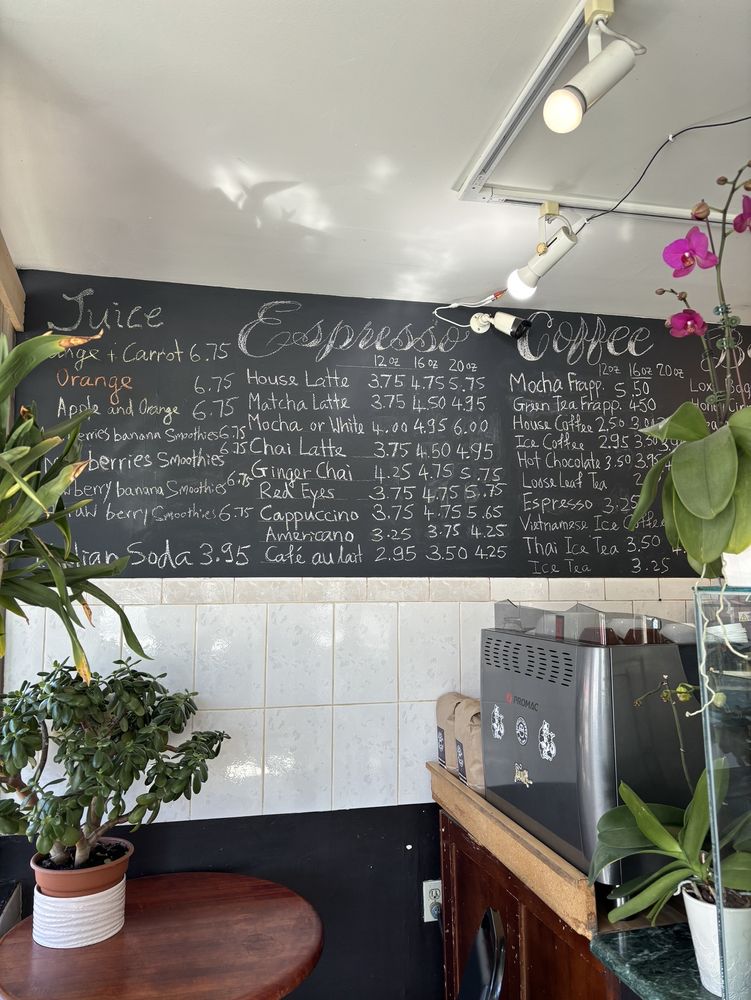 Juice
+ Carrot 6.75
Orange 6.75
Apple and Orange 6.75
banana Smoothies 6.75
berries Smoothies 6.75
berry banana Smoothies 6.75
berry Smoothies 6.75
Soda 3.95
Espresso
12oz 16oz 20oz
House Latte 3.75 4.75 5.75
Matcha Latte 3.75 4.50 4.95
Mocha or White 4.00 4.95 6.00
Chai Latte 3.75 4.50 4.95
Ginger Chai 4.25 4.75 5.75
Red Eyes 3.75 4.75 5.75
Cappuccino 3.75 4.75 5.65
Americano 3.25 3.75 4.25
Café au lait 2.95 3.50 4.25
Coffee
12oz 16oz 20oz
Mocha Frapp. 5.50
Green Tea Frapp. 4.50
House Coffee 2.50
Ice Coffee 2.95 3.50
Hot Chocolate 3.50
Loose Leaf Tea
Espresso 3.25
Vietnamese Ice Coffee
Thai Ice Tea 3.50
Ice Tea 3.25
PROMAC